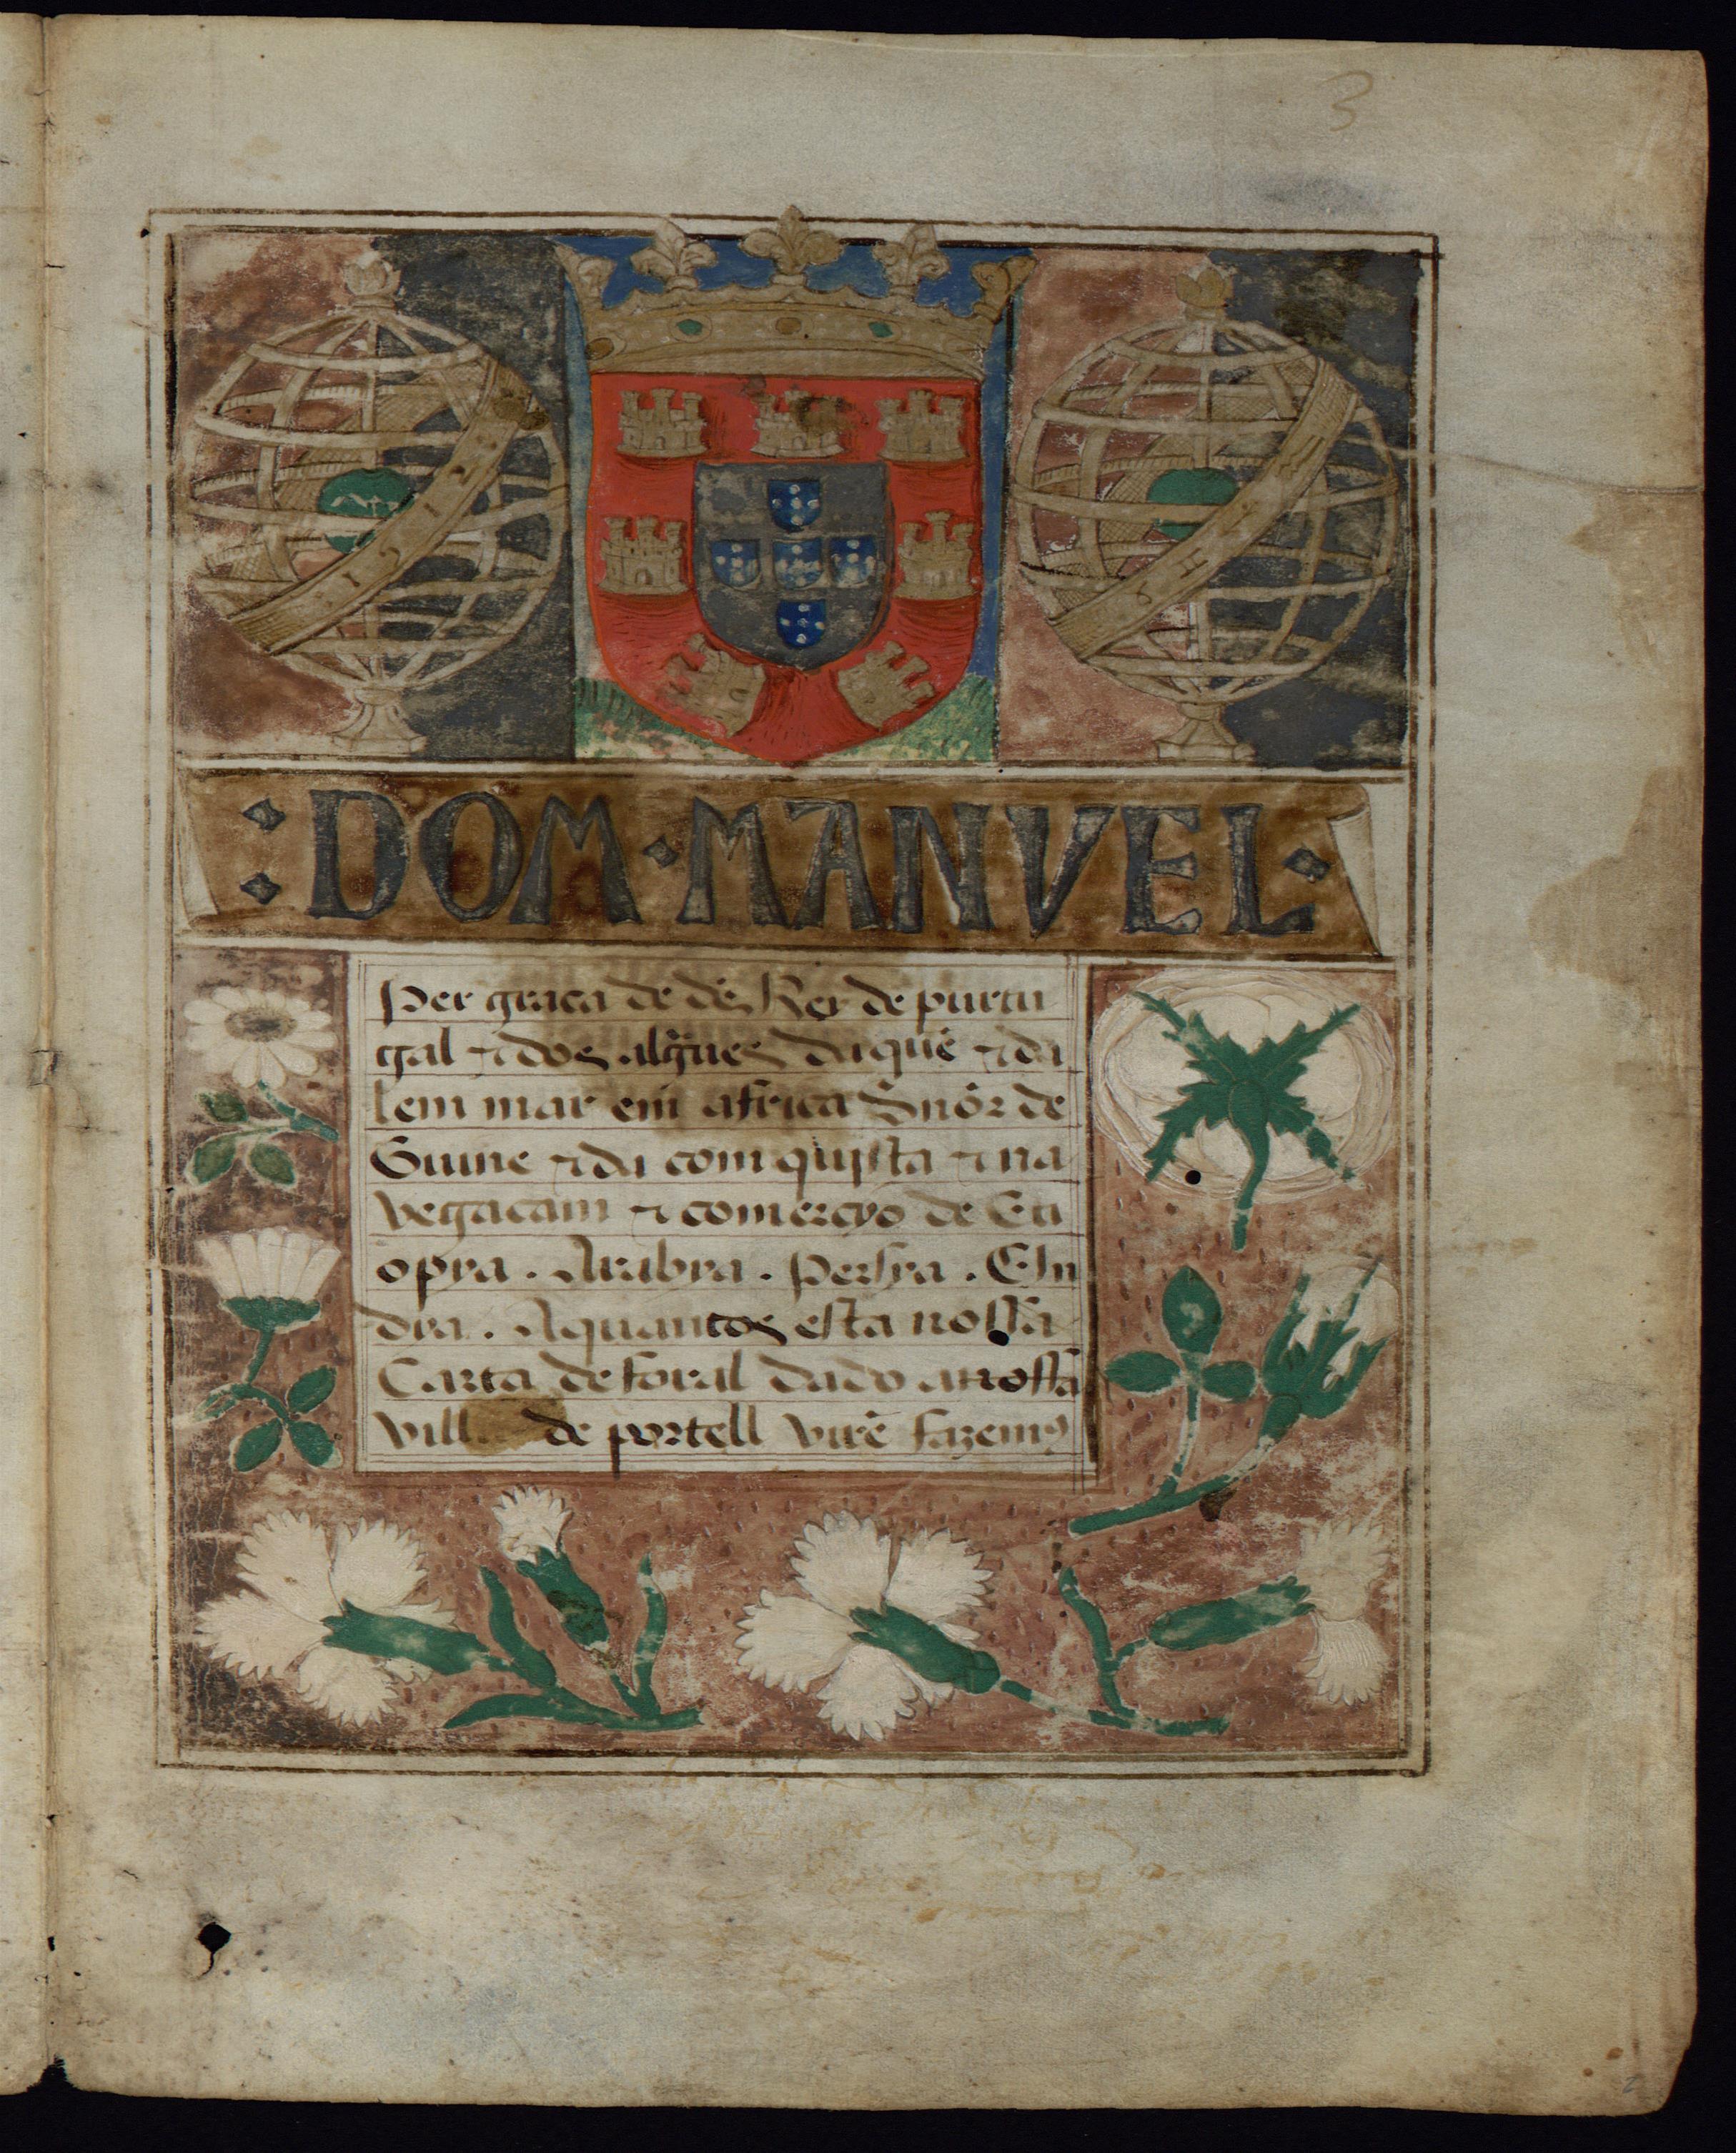 3
·DOM·MANVEL·
Per graca de dẽs Rey de purtu
gal ⁊ dos algr̃ues daquẽ ⁊ da
lem mar em africa Snõr de
Guine ⁊ da comquista ⁊ na
vegacam ⁊ comercyo de Eti
opya . Arabya . Persya . E Jn
dya . A quantos esta nossa
Carta de foral dado a nossa
villa de portell virẽ fazemꝯ